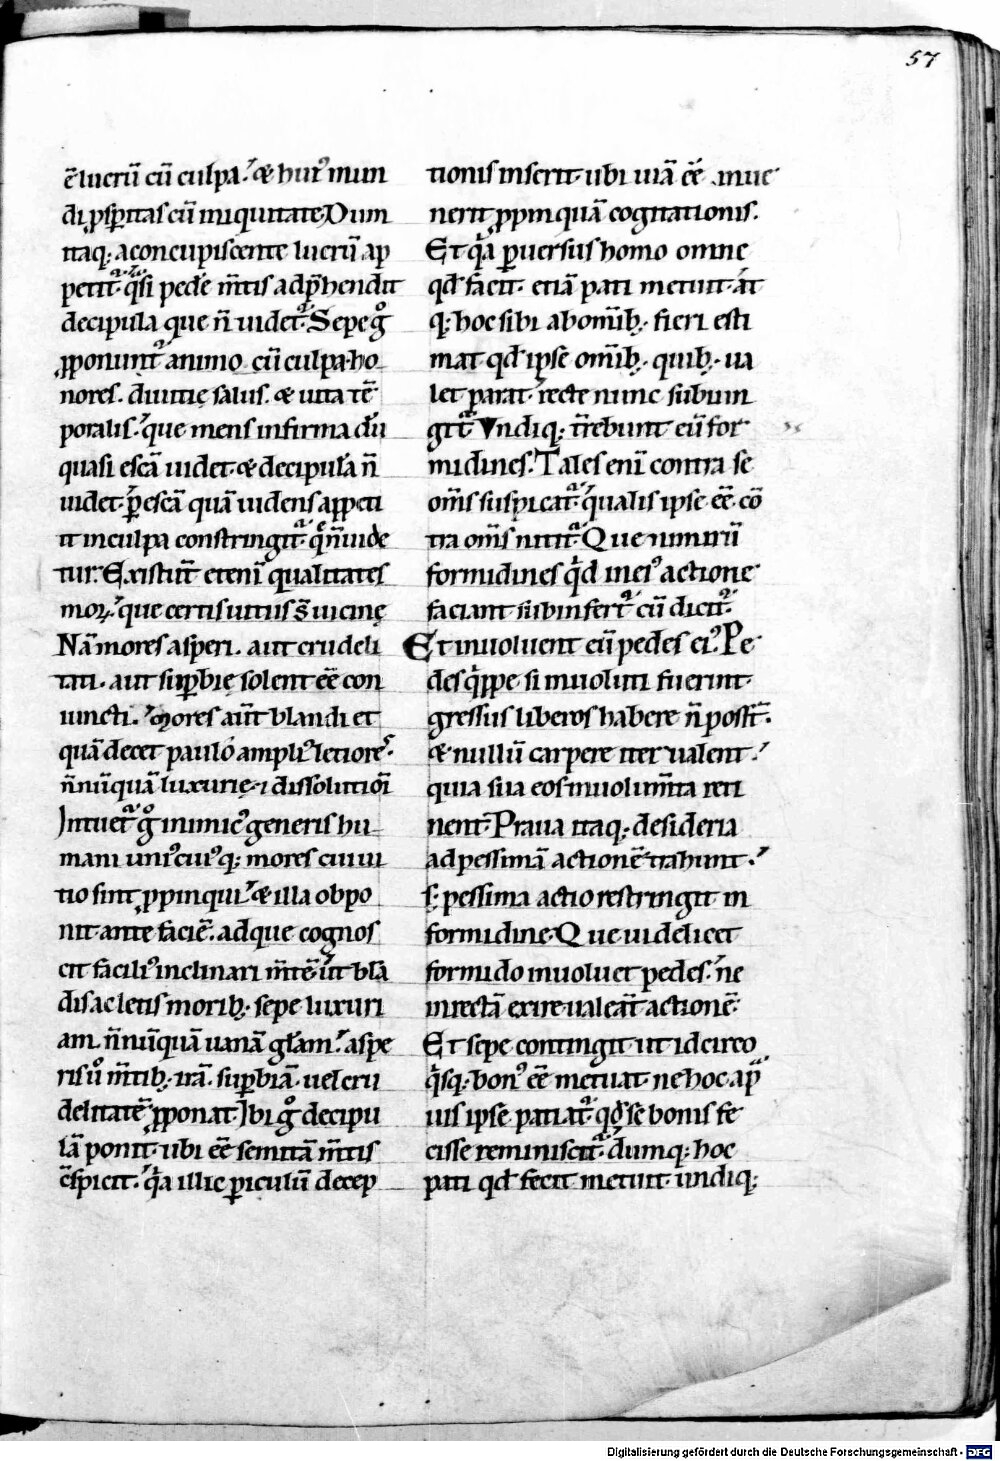 57
ē lucrū cū culpa. & hui᷒ mun
di ꝓsꝑitas cū iniquitate. Dum
itaq; a concupiscente lucrū ap
petit᷑. q̄si pede m̄tis adp̄hendit᷑
decipula que n̄ uidet᷑. Sepe gͦ
ꝓponunt᷑ animo cū culpa ho
nores. diuitię salus. & uita tē
poralis. que mens infirma dū
quasi escā uidet. & decipulā n̄
uidet. ꝑ escā quā uidens appeti
it in culpa constringit᷑. q̄ n̄ uide
tur. Existūt etenī qualitates
moꝝ. que certis uitiis s̄ uicinę
Nā mores asperi. aut crudeli
tati. aut suꝑbię solent eē con
iuncti. Mores aūt blandi et
quā decet paulo ampli᷒ letiores.
n̄nūquā luxurię ⁊ dissolutiōi
Intuet᷑ gͦ inimic᷒ generis hu
mani uni᷒cui᷒q; mores cui ui
tio sint ꝓpinqui. & illa obpo
nit ante faciē. ad que cognos
cit facili᷒ inclinari m̄tē. ut blā
dis ac letis morib;. sepe luxuri
am. n̄nūquā uanā gl̄am. aspe
ris ūͦ m̄tib; irā. suꝑbiā. uel cru
delitatē ꝓponat. Ibi gͦ decipu
lā ponit. ubi eē semitā m̄tis
c̄spicit. q̄a illic ꝑiculū decep
tionis inserit. ubi uiā eē inue
nerit ꝓpinquā cogitationis.
Et q̄a ꝑuersus homo omne
qd̄ facit. etiā pati metuit. at
q; hoc sibi ab omīb;. fieri esti
mat qd̄ ipse omīb;. quib; ua
let parat. recte nunc subiun
git᷑ Vndiq; t̄rebunt eū for
midines. Tales enī contra se
om̄s suspicat᷑. qualis ipse eē cō
tra om̄s nitit᷑. Que nimirū
formidines qd̄ in ei᷒ actione
faciant subinfert᷑ cū dicit᷑.
Et inuoluent eū pedes ei᷒. Pe
des q̄ppe si inuoluti fuerint.
gressus liberos habere n̄ poss̄t.
& nullū carpere iter ualent.
quia sua eos inuolum̄ta reti
nent. Praua itaq; desideria
ad pessimā actionē trahunt.
s; pessima actio restringit in
formidine. Que uidelicet
formido inuoluet pedes. ne
in rectā exire ualeāt actionē.
Et sepe contingit ut idcirco
q̄sq; bon᷒ eē metuat ne hoc a p̄
uis ipse patiat᷑. qd̄ se bonis fe
cisse reminiscit᷑. dumq; hoc
pati qd̄ fecit metuit. undiq;
Digitalisierung gefördert durch die Deutsche Forschungsgemeinschaft - DFG